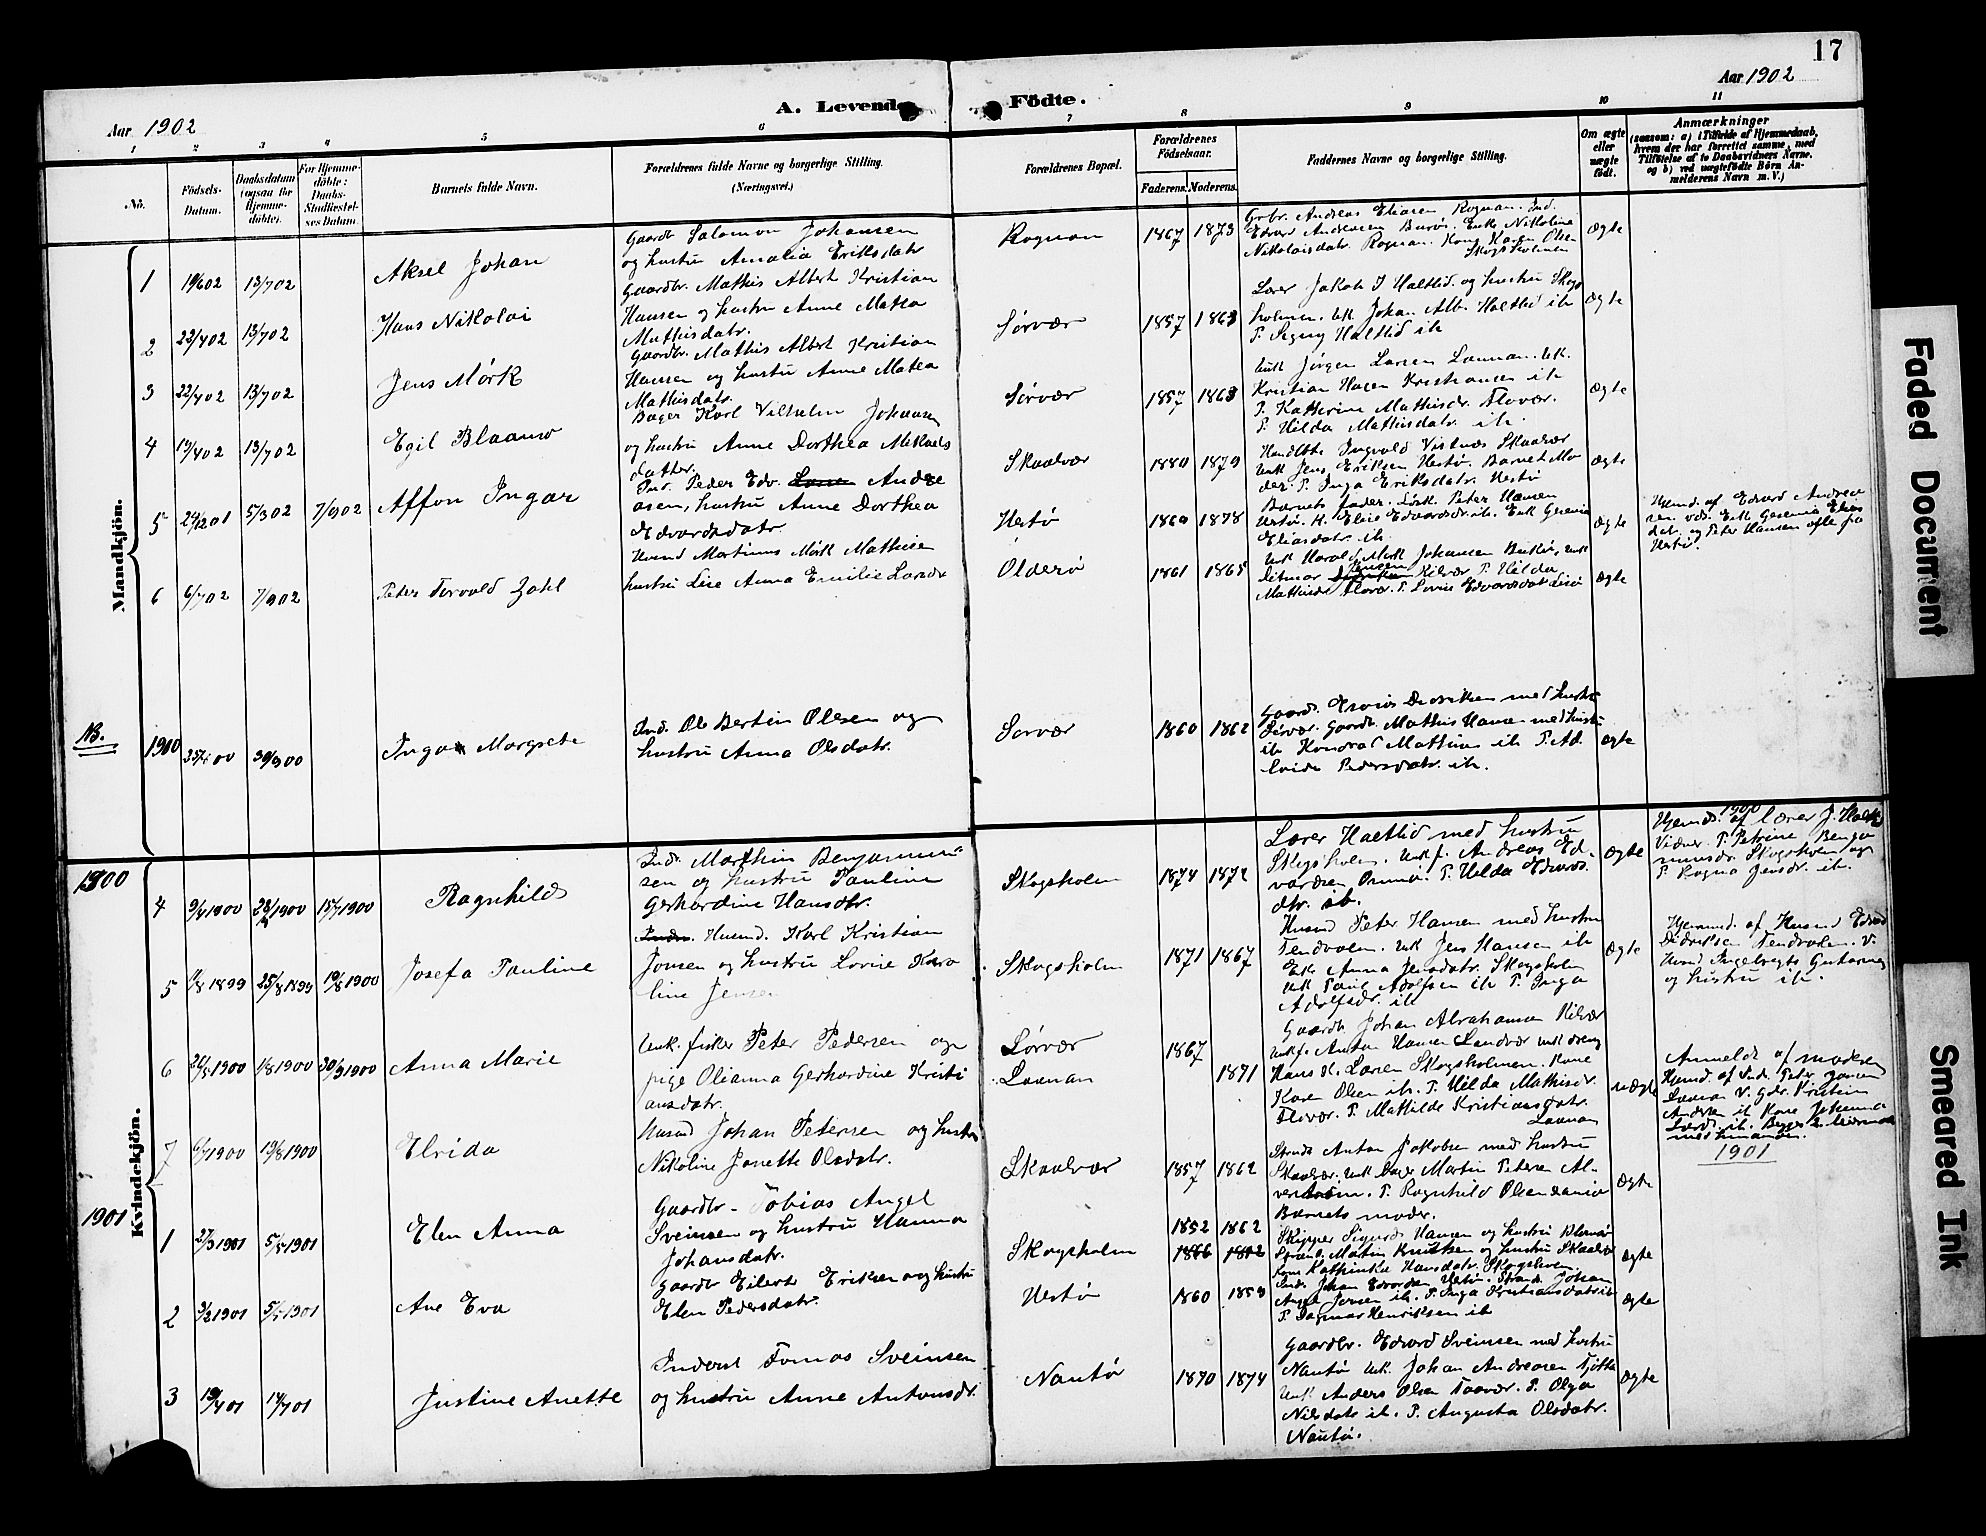 17
Aar 1902
Aar 1902
A. Levende Födte.
1 2 3 4 5 6 7 8 9 10 11
No.
Födsels-Datum.
Daabsdatum (ogsaa for Hjemmedöbte).
For Hjemmedöbte: Daabs-Stadfæstelses Datum.
Barnets fulde Navn.
Forældrenes fulde Navne og borgerlige Stilling. (Næringsvei.)
Forældrenes Bopæl.
Forældrenes Födselsaar.
Faderens. Moderens.
Faddernes Navne og borgerlige Stilling.
Om ægte eller uægte födt.
Anmærkninger
(saasom: a) i Tilfælde af Hjemmedaab, hvem der har forrettet samme, med Tilföielse af to Daabsvidners Navne, og b) ved uægtefödte Börn Anmelderens Navn m. V.)
Mandkjön.
1 19/6 02 13/7 02 Aksel Johan
Gaardb Salomon Johansen
og hustru Amalia Eriksdatr
Rognan 1867 1873
Grbr. Andreas Eliasen Rognan. Ind.
Edvard Andreasen Burö. Enke Nikoline
Nikolaisdatr. Rognan. Kone Karen Olsen
Skogsholmen
Ægte
2 22/4 02 13/7 02 Hans Nikolai
Gaardbr. Mathis Albert Kristian
Hansen og hustru Anne Matea
Mathisdatr.
Sörvær 1857 1863
Lærer Jakob J Haltlid og hustru Skogs
holmen. Uk Johan Alb. Haltlid ib
P. Signy Haltlid ib
Ægte
3 22/4 02 13/7 02 Jens Mörk
Gaardbr. Mathis Albert Kristian
Hansen og hustru Anne Matea
Mathisdatr.
Sörvær 1857 1863
Jörgen Larsen Laanan. Uk.
Kristian Hagen Kristiansen ib
P. Kathrine Mathisdr. Flovær.
P. Hilda Mathisdatr. ib.
Ægte
4 19/4 02 13/7 02 Egil Blaamo
Bager Karl Vilhelm Johansen
og hustru Anne Dorthea Mikaels
datter.
Skaalvær 1880 1879
Ingvald Vistnæs Skaalvær
Uk Jens Eriksen Hestö. Barnets Mo
der. P. Inga Eriksdatr. Hestö
Ægte
5 24/12 01 5/3 02 7/9 02 Affon Ingar
Ind. Peder Edv. Andre
asen, hustru Anne Dorthea
Edvardsdatr.
Hestö 1860 1878
Barnets fader. Peter Hansen
Hestö. H. Elise Edvardsdr. ib. Enk Gesenia
Eliasdatr. ib.
Ægte
Hjemd. af Edvard Andrea
sen ved. Enk Gesenia Elias
datr. og Peter Hansen alle fra
Hestö.
6 6/7 02 7/9 02 Peter Torvald Zahl
Husmd Martinus Mörk Mathisen
hustru Lise Anna Emilie Larsdr
Olderö 1861 1865
Uk Harald Mörk Johansen
Ditmar Jensen Kilvær P. Hilda
Mathisdr. Flovær. P. Lovise Edvardsdat
Ægte
NB.
1900 30/9 00 Inga Margrete
Ind. Ole Bertin Olsen og
hustru Anna Olsdatr.
Sorvær 1860 1862
Gaardb. Didriksen med hustru
Sörvær. Gaardb. Mathis Hansen med hustru
ib Konrad Mathisen ib P. Ad.
Pedersdatr. ib.
Ægte
Kvindekjön.
1900
4 9/4 1900 15/7 1900 Ragnhild
Ind. Marthin Benjamin
sen og hustru Pauline
Gerhardine Hansdtr.
Skogsholm 1874 1872
Lærer Haltlid med hustru
Skogsholm. Ukf. Andreas Ed.
vardsen P. Hilda Edvards.
dtr. ib.
Ægte
Hjemd. 1900 af lærer J. Haltlid
Vidner. P. Petrine Benja
minsdr. Skogsholm og
P. Ragna Jensdr. ib.
5 25/8 1899 19/8 1900 Josefa Pauline
Husmd. Karl Kristian
Jensen og hustru Lovise Karo
line Jensen
Skogsholm 1871 1867
Husmd Peter Hansen med hustru
Tendvalen. Uk Jens Hansen ib
Enk. Anna Jensdatr. Skogsholm
Uk Paul Adolfsen ib P. Inga
Adolfsdr. ib
Ægte
Hjemmd. af Husmd Edvard
Didriksen Tendvalen. V.
Husmd Ingebregts
og hustru ib.
6 1/8 1900 30/9 1900 Anna Marie
Unk. fisker Peter Pedersen og
pige Olianna Gerhardine Kristi
ansdatr.
Sörvær
Laanan
1867
1871
Gaardb. Johan Abrahamsen Kilvær
Ukf. Anton Hansen Sandvær Uk dreng
Hans K. Larsen Skogsholmen. Kone
Karen Olsen ib. P. Hilda Mathisdr.
Flovær. P. Mathilde Kristiansdatr.
Laanan
uægte
Anmeldt af moderen
Hjemd. af Ind. Peter Jansen
Laanan V. gdr. Kristian
Andrea ib Kone Johanna
1901
7 6/7 1900 19/8 1900 Elrida
Husmd Johan Petersen og hustru
Nikoline Janette Olsdatr.
Skaalvær 1857 1862
Strands. Anton Jakobsen med hustru
Skaalvær. Uk Martin Petersen Al-
P. Ragnhild Olsen
Barnets moder.
Ægte
1901
1 27/3 1901 5/5 1901 Elen Anna
Gaardbr. Tobias Angel
Sveinsen og hustru Hanna
Johansdatr.
Skogsholm 1852 1862
Skipper Sigurd Hansen og hustru
Strands. Martin Knutsen og hustru Skaalvær
Kone Kathinka Hansdatr. Skogsholm.
Ægte
2 3/2 1901 5/5 1901 Ane Eva
Gaardb Eilert Eriksen og hustru
Elen Pedersdatr.
Hestö 1860 1859
Ind. Johan Edvardsen Hestö. Strands. Johan
Angel Jensen ib. P. Inga Kristiansdatr ib
P. Dagmar Henriksen ib
Ægte
3 19/4 01 14/7 01 Justine Anette
Inderst Tomas Sveinsen
og hustru Anne Antonsdr.
Nautö 1870 1874
Gaardbr. Edvard Sveinsen med hustru
Nautö Uk. Johan Andreasen Tjötta
Uk Anders Olsen P. Olga
Nilsdatr ib. P. Augusta Olsdatr.
Nautö.
Ægte
Faded Document
Smeared Ink